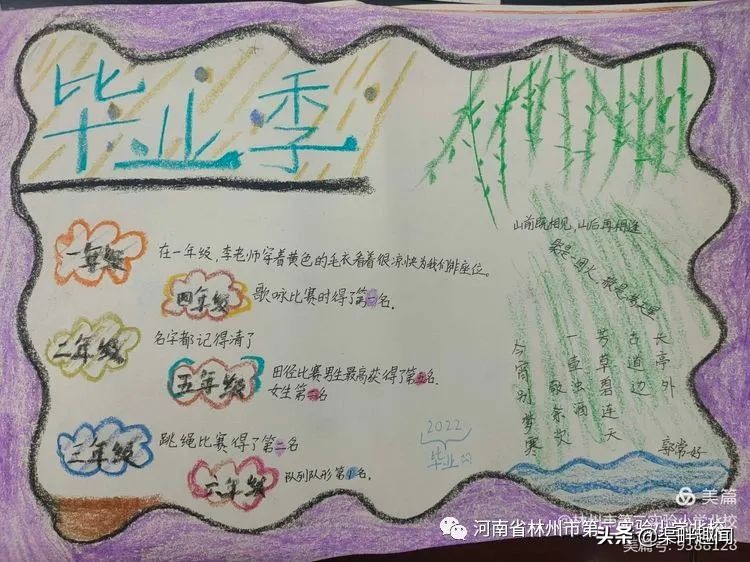 毕业季
一年级
在一年级,李老师穿着黄色的毛衣看着很凉快为我们排座位。
四年级
歌咏比赛时得了第一名.
二年级
名字都记得清了
五年级
田径比赛男生最高获得了第五名.
女生第六名
三年级
跳绳比赛得了第二名
六年级
队列队形第1名.
2022
毕业
山前既相见,山后再相逢
长亭外
古道边
芳草碧连天
一壶浊酒
敬余欢
今宵别梦寒
郭常好
美篇
河南省林州市第
头条@渠畔趣闻
美篇号: 9388128